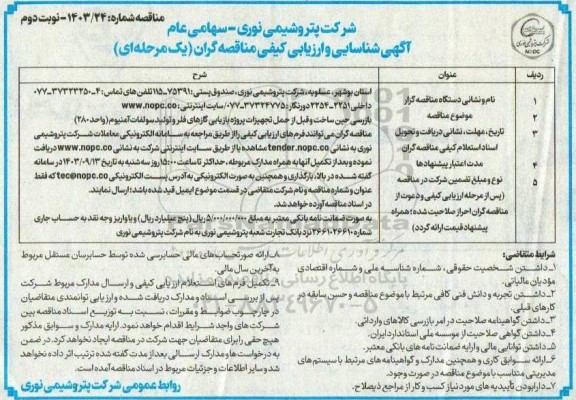 مناقصه شماره: ۱۴۰۳/۲۴ - نوبت دوم
شرکت پتروشیمی نوری - سهامی عام
آگهی شناسایی و ارزیابی کیفی مناقصه گران (یک مرحله‌ای)
NOPC
ردیف عنوان شرح
۱ نام و نشانی دستگاه مناقصه گزار
استان بوشهر، عسلویه، شرکت پتروشیمی نوری، صندوق پستی: ۷۵۳۹۱-۱۱۵ تلفن های تماس: ۴-۳۷۳۲۳۲۵۰-۰۷۷
داخلی ۲۲۵۱-۲۲۵۴ دورنگار: ۳۷۳۲۴۷۷۵-۰۷۷ / سایت اینترنتی: www.nopc.co
۲ موضوع مناقصه
بازرسی حین ساخت و قبل از حمل تجهیزات پروژه بازیابی گازهای فلر و تولید سولفات آمونیوم (واحد ۲۸۰)
۳ تاریخ، مهلت، نشانی دریافت و تحویل
اسناد استعلام کیفی مناقصه گران
مناقصه گران می توانند فرم های ارزیابی کیفی را از طریق مراجعه به سامانه الکترونیکی معاملات شرکت پتروشیمی
نوری به نشانی tender.nopc.co مشاهده یا از طریق سایت اینترنتی شرکت به نشانی www.nopc.co دریافت
نموده و بعد از تکمیل آنها به همراه مدارک مربوطه، حداکثر تا ساعت ۱۵:۰۰ روز سه شنبه به تاریخ ۱۴۰۳/۰۹/۱۳ در سامانه
گفته شده در بالا، بارگذاری و همچنین به صورت الکترونیکی به آدرس پست الکترونیکی tec@nopc.co که فقط
عنوان و شماره مناقصه و نام شرکت متقاضی در قسمت موضوع ایمیل قید شده باشد؛ ارسال نمایند.
۴ مدت اعتبار پیشنهادها
در اسناد مناقصه آورده خواهد شد.
۵ نوع و مبلغ تضمین شرکت در مناقصه
(پس از مرحله ارزیابی کیفی و دعوت از
مناقصه گران احراز صلاحیت شده؛ همراه
پیشنهاد قیمت ارائه گردد)
به صورت ضمانت نامه بانکی معتبر به مبلغ ۵/۰۰۰/۰۰۰/۰۰۰ ریال (پنج میلیارد ریال) و یا واریز وجه نقد به حساب جاری
شماره ۲۶۶۱۰-۲۶۶۱ نزد بانک تجارت شعبه پتروشیمی نوری به نام شرکت پتروشیمی نوری
شرایط متقاضی:
۱- داشتن شخصیت حقوقی، شماره شناسه ملی و شماره اقتصادی
مؤدیان مالیاتی.
۲- داشتن تجربه و دانش فنی کافی مرتبط با موضوع مناقصه و حسن سابقه در
کارهای قبلی.
۳- داشتن گواهینامه صلاحیت در امر بازرسی کالاهای وارداتی.
۴- داشتن گواهی صلاحیت از موسسه ملی استاندارد ایران.
۵- داشتن توانایی مالی و ارایه ضمانت نامه های بانکی معتبر.
۶- ارائه سوابق کاری و همچنین مدارک و گواهینامه های مرتبط با سیستم های
مدیریتی متناسب با موضوع مناقصه در صورت وجود.
۷- دارا بودن تأییدیه های مورد نیاز کسب و کار از مراجع ذیصلاح.
۸- ارائه صورتحساب های مالی حسابرسی شده توسط حسابرسان مستقل مربوط
به آخرین سال مالی.
۹- تکمیل فرم های استعلام ارزیابی کیفی و ارسال مدارک مربوط شرکت
پس از بررسی اسناد و مدارک دریافت شده و ارزیابی توانمندی متقاضیان
در چارچوب ضوابط و مقررات، نسبت به توزیع اسناد مناقصه بین
شرکت های واجد شرایط اقدام خواهد نمود. ارایه مدارک و سوابق مذکور
هیچ حقی را برای متقاضیان جهت شرکت در مناقصه ایجاد نخواهد کرد. در ضمن
به درخواست ها و مدارک ارسالی بعد از مدت گفته شده ترتیب اثر داده نخواهد
شد و سایر اطلاعات و جزئیات مربوط در اسناد مناقصه آمده است.
روابط عمومی شرکت پتروشیمی نوری